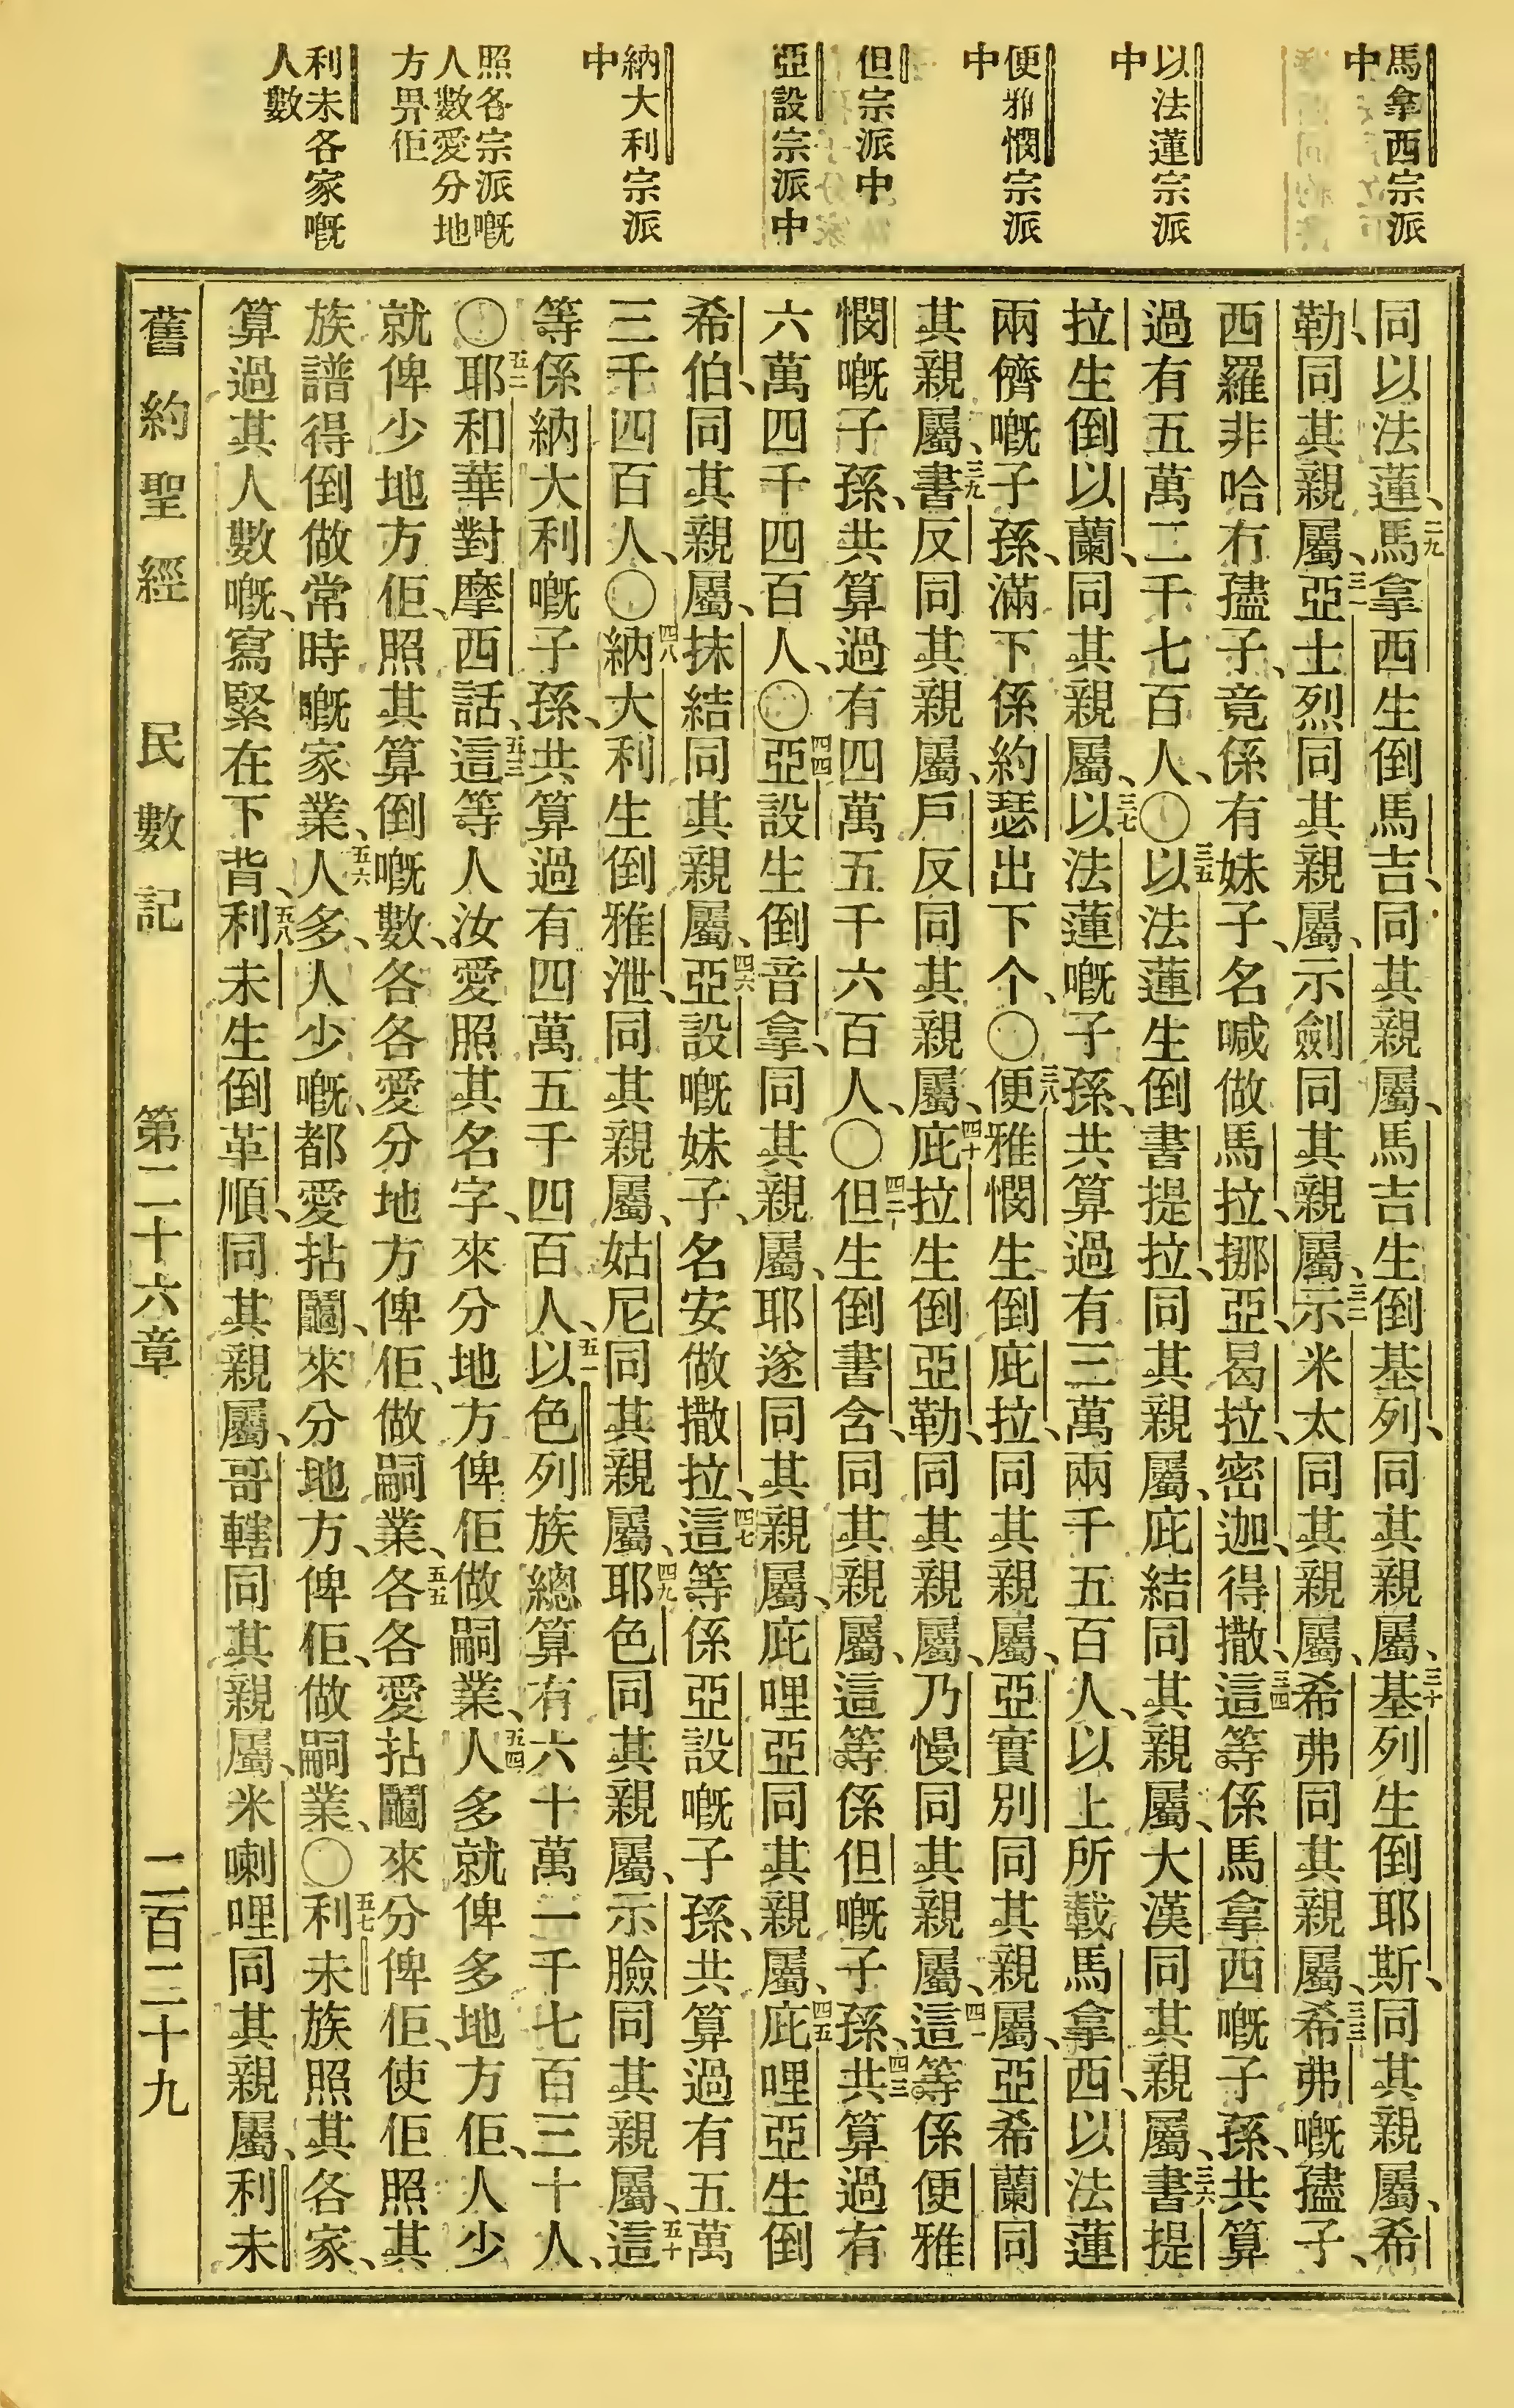 馬拿西宗派
中
以法蓮宗派
中
便雅憫宗派
中
但宗派中
亞設宗派中
納大利宗派
中
照各宗派嘅
人數愛分地
方畀佢
利未各家嘅
人數
同以法蓮、二九馬拿西生倒馬吉、同其親屬、馬吉生倒基列、同其親屬、三十基列生倒耶斯、同其親屬、希
勒、同其親屬、三一亞士烈同其親屬、示劍同其親屬、三二示米太同其親屬、希弗同其親屬、三三希弗嘅孻子、
西羅非哈冇孻子、竟係有妹子、名喊做馬拉、挪亞、曷拉、密迦、得撒、三四這等係馬拿西嘅子孫、共算
過有五萬二千七百人、〇三五以法蓮生倒書提拉、同其親屬、庇結同其親屬、大漢同其親屬、三六書提
拉生倒以蘭、同其親屬、三七以法蓮嘅子孫、共算過有三萬兩千五百人、以上所載馬拿西、以法蓮
兩儕嘅子孫、滿下係約瑟出下个、〇三八便雅憫生倒庇拉、同其親屬、亞實別同其親屬、亞希蘭同
其親屬、三九書反同其親屬、戶反同其親屬、四十庇拉生倒亞勒、同其親屬、乃慢同其親屬、四一這等係便雅
憫嘅子孫、共算過有四萬五千六百人、〇四二但生倒書含、同其親屬、這等係但嘅子孫、四三共算過有
六萬四千四百人、〇四四亞設生倒音拿、同其親屬、耶遂同其親屬、庇哩亞同其親屬、四五庇哩亞生倒
希伯、同其親屬、抹結同其親屬、四六亞設嘅妹子、名安做撒拉、四七這等係亞設嘅子孫、共算過有五萬
三千四百人、〇四八納大利生倒雅泄、同其親屬、姑尼同其親屬、四九耶色同其親屬、示臉同其親屬、五十這
等係納大利嘅子孫、共算過有四萬五千四百人、五一以色列族總算有六十萬一千七百三十人、
〇五二耶和華對摩西話、五三這等人汝愛照其名字、來分地方俾佢做嗣業、五四人多就俾多地方佢、人少
就俾少地方佢、照其算倒嘅數、各各愛分地方俾佢、做嗣業、五五各各愛拈鬮來分俾佢、使佢照其
族譜得倒做常時嘅家業、五六人多、人少嘅、都愛拈鬮、來分地方、俾佢、做嗣業、〇五七利未族照其各家、
算過其人數嘅、寫緊在下背、五八利未生倒革順、同其親屬、哥轄同其親屬、米喇哩同其親屬、利未
舊約聖經　民數記　第二十六章　二百二十九